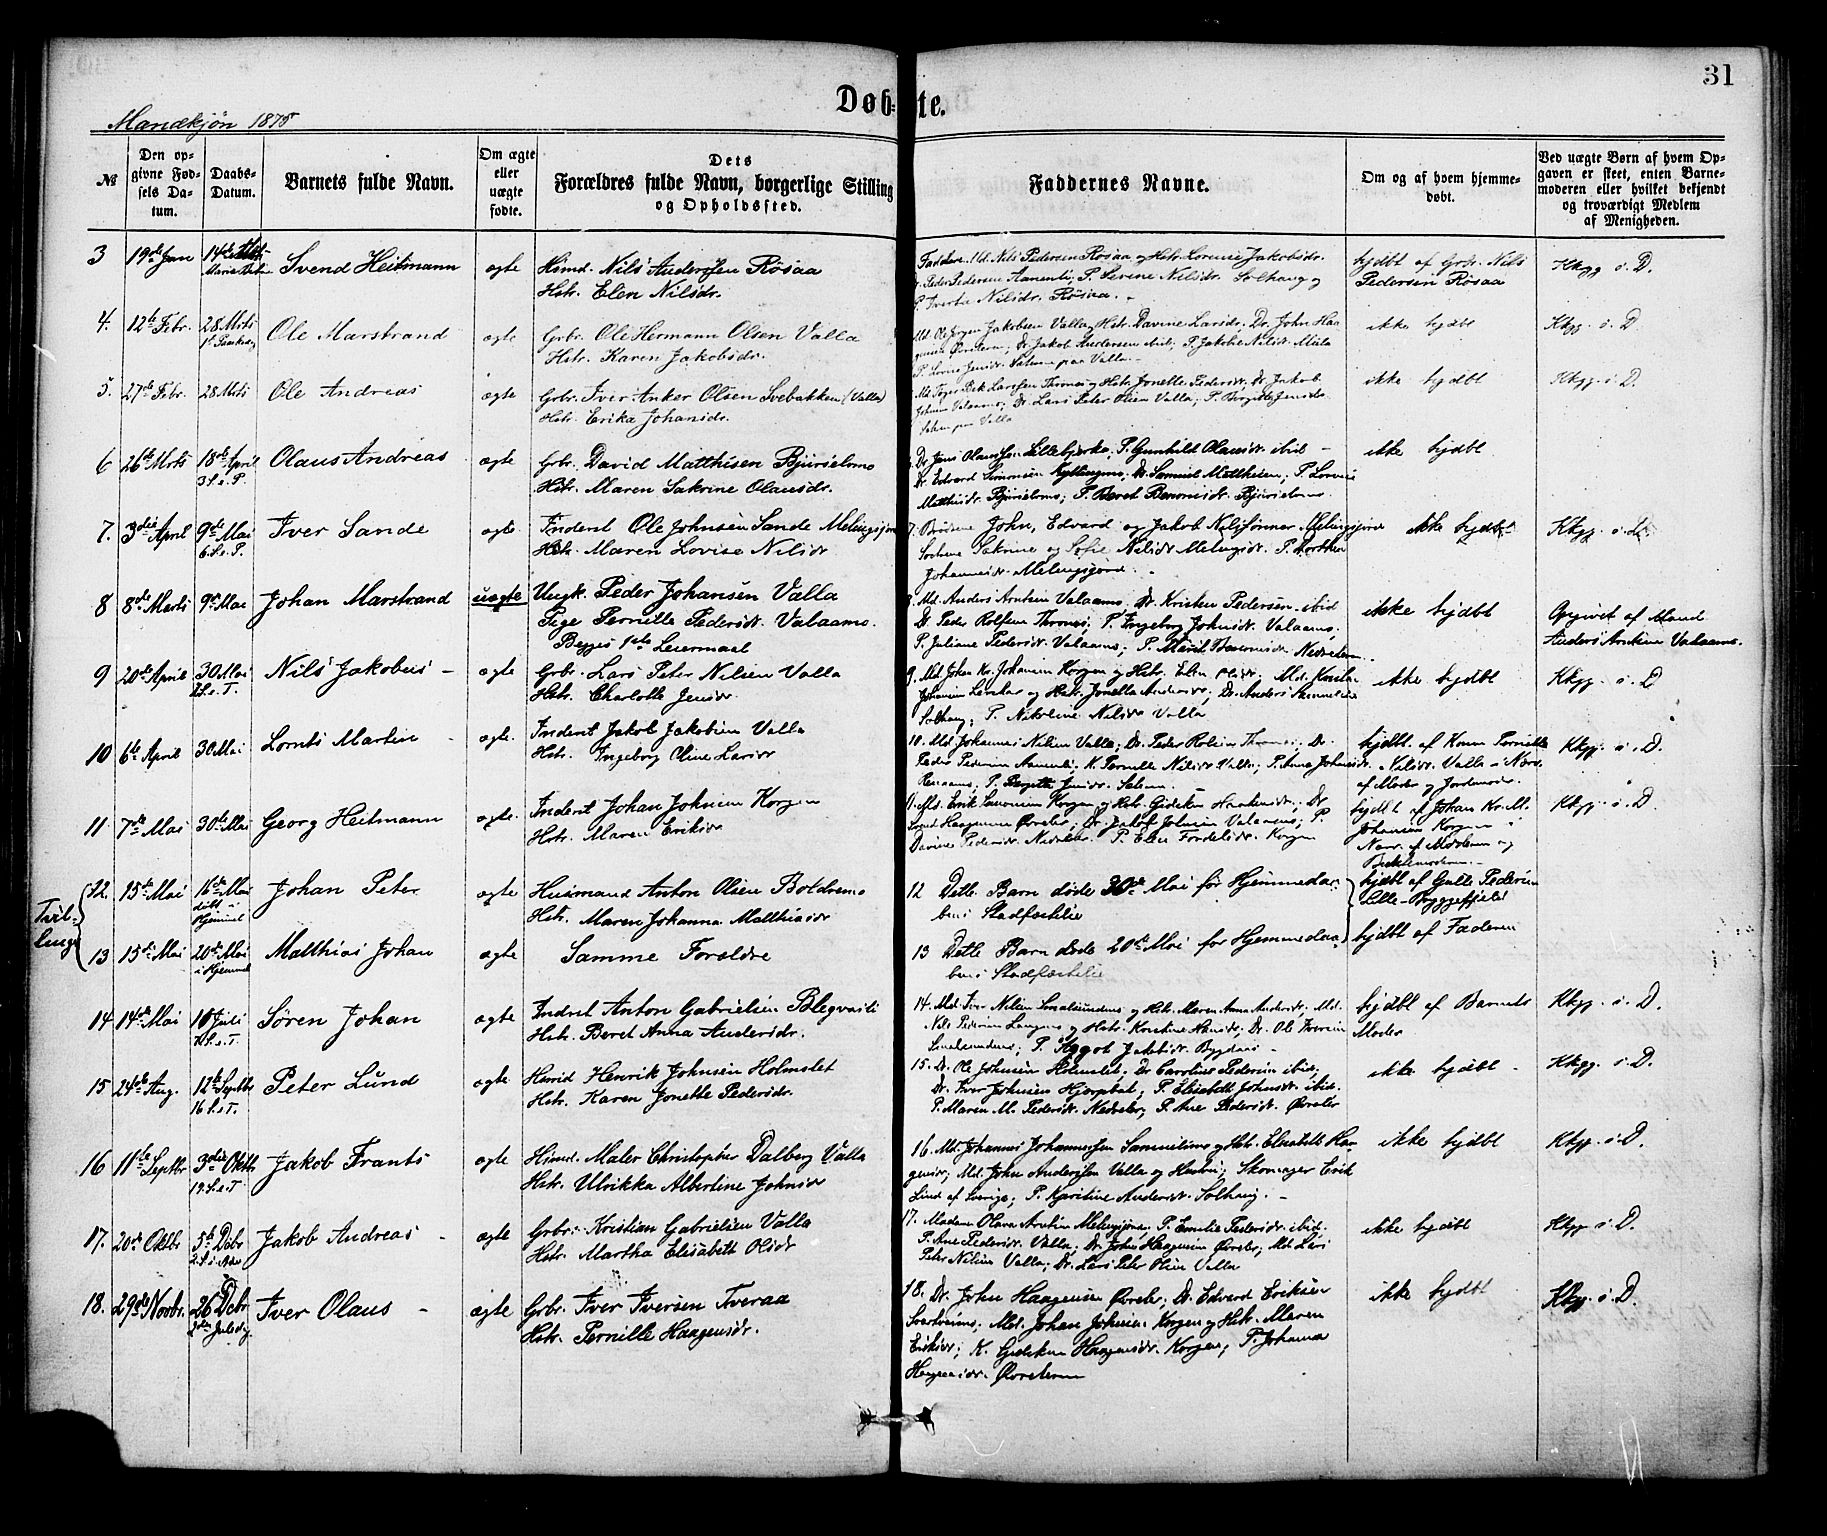 31
Døb-te.
Mandkjøn 1875
№
Den op-
givne Fød-
sels Da-
tum.
Daabs-
Datum.
Barnets fulde Navn.
Om ægte
eller
uægte
fødte.
Dets
Forældres fulde Navn, borgerlige Stilling
og Opholdssted.
Faddernes Navne.
Om og af hvem hjemme-
døbt.
Ved uægte Børn af hvem Op-
gaven er skeet, enten Barne-
moderen eller hvilket bekjendt
og troværdigt Medlem
af Menigheden.
3 19de Jan 14de Marts Svend Heitmann ægte Himd. Nils Andersen Røsaa
Hstr. Elen Nilsdr.
Faddere. Md. Nils Pedersen Røsaa og Hstr. Lorense Jakobsdr.
Peder Pedersen Aanenli; P. Serine Nilsdr. Solhaug og
P. Iverta Nilsdr. Røsaa.
hjdbt af Grbr. Nils
Pedersen Røsaa
Kkgj. i. D.
4. 12te Febr. 28 Mrts Ole Marstrand ægte Grbr. Ole Hermann Olsen Valla
Hstr. Karen Jakobsdr.
Jakobsen Valla og Hstr. Davine Larsdr. Dr. John Haa
gensen Øvrelern; Dr. Jakob Andersen ibid; P. Jakobe Nilsdr.
ikke hjdbt
Kkgj. i. D.
5. 27de Febr. 28 Mrts Ole Andreas ægte Grbr. Iver Anker Olsen Svebakken (Valla)
Hstr. Erika Johansdr.
Larssen Thronæs og Hstr. Jonette Pedersdr. Dr. Jakob
Johnsen Valaamo; Dr. Lars Peter Olsen Valla; P. Birgitte Jensdr.
Selem paa Valla
ikke hjdbt
Kkgj. i. D.
6 26de Mrts 18de April
3 S. e. P.
Olaus Andreas ægte Grbr. David Matthisen Bjurselvmo
Hstr. Maren Sakrine Olausdr.
Dr. Jens Olaussen Lillebjerka, P. Gunhild Olausdr. ibid -
Dr. Edvard Simonsen Nyllingmo; Dr. Samuel Matthisen; P. Lorense
Matthisdr. Bjurselvmo; P. Beret Benonisdr. Bjurselvmo.
ikke hjdbt
7. 3die April 9de Mai
6 S. e. P.
Iver Sande ægte Inderst Ole Johnsen Sande Melingsjord
Hstr. Maren Lovise Nilsdr
7. Brødrene John, Edvard og Jakob Nilssønner Melingsjord
Søstrene Sakrine og Sofie Nilsdr. Melingsjd. P. Marthea
Johannesdr. Melingsjord.
ikke hjdbt
Kkgj. i. D.
8 8de Marts 9de Mai Johan Marstrand uægte Ungk. Peder Johansen Valla
Pige Pernille Pedersdr. Valaamo.
Begges 1ste Leiermaal
Md. Anders Arntsen Valaamo, Dr. Kristen Pedersen ibid
Dr. Peder Rolfsen Thronæs; P. Ingeborg Johnsdr. Valaamo,
P. Juliane Pedersdr. Valaamo; P. Marit Nedrelern.
ikke hjdbt
Opgivet af Mand
Anders Arntsen Valaamo.
9 20de April 30 Mai
2 S. e. T.
Nils Jakobus - ægte Grbr. Lars Peter Nilsen Valla
Hstr. Charlotte Jensdr
9. Md. Johan Kr. Johansen Korgen og Hstr. Elen Olsdr; Md. Kristen
Johansen og Hstr. Jonella Andersdr; Dr. Anders Samuelsen
Solhaug; P. Nikoline Nilsdr Valla
ikke hjdbt
Kkgj. i. D
10 6te April 30 Mai Lornts Martin - ægte. Inderst Jakob Jakobsen Valla
Hstr. Ingeborg Oline Larsdr
10. Md. Johannes Nilsen Valla; Dr. Peder Rolfsen Thronæs; Dr.
Peder Pedersen Aanenli; K. Pernille Nilsdr Valla; P. Anne Johansdr.
P. Birgitte Jensdr. Selem.
hjdbt. af Konen Pernille
Nilsdr. Valla i Nærv.
af Moder og Jordmoder.
Kkgj. i. D.
11 7de Mai 30te Mai Georg Heitmann ægte. Inderst Johan Johnsen Korgen
Hstr. Maren Eriksdr
11. Md. Erik Korgen og Hstr. Gidsken Haakensdr; Dr.
Svend Haagensen Øvreler; Dr. Jakob Johnsen Valaamo; P.
Davine Pedersdr. Nedreler. P. Elen Fordelsdr. Korgen
hjdbt af Johan Kr. M.
Johansen Korgen i
Nærv. af Moderen og
Kkgj. i. D.
Tvil-
linge
12. 15de Mai 16de Mai
døbt i
Hjemmet
Johan Peter ægte Husmand Anton Olsen Boldremo
Hstr. Maren Johanna Matthiasdr
12 Dette Barn døde 30te Mai før Hjemmedaa-
ben i Stadfæstelse
hjdbt af Gulle Pedersen
Lille-Bryggefjeld
13 15de Mai 20de Mai
i Hjemmet
Matthias Johan ægte Samme Forældre
13 Dette Barn døde 20de Mai før Hjemmedaa-
ben i Stadfæstelse
hjdbt af Faderen
14 14de Mai 10 Juli Søren Johan ægte Indrst Anton Gabrielsen Blegvasli
Hstr. Beret Anna Andersdr.
14. Md. Iver Nilsen Smalsundmo og Hstr. Maren Anna Andersdr. Md.
Nils Pedersen og Hstr. Kristine Hansdr; Dr. Ole Iversen
Smalsundmo; P. Aggot Jakobsdr. Bygdaas -
hjdbt af Barnets
Moder
Kkgj. i. D.
15 24de Aug. 12te Septbr
16 S. e. T.
Peter Lund ægte Himd Henrik Johnsen Holmslet
Hstr. Karen Jonette Pedersdr.
15. Dr. Ole Johnsen Holmslet. Dr Carolius Pedersen ibid;
Dr. Iver Johnsen Hjorpbal; P. Elisabeth Johnsdr. ibid.
P. Maren M. Pedersdr. Nedreler; P. Ane Pedersdr. Øvreler
ikke hjdbt -
Kkgj. i. D.
16 11te Septbr 3die Oktbr
19. S. e. T
Jakob Frants ægte Himd. Maler Christopher Dalberg Valla
Hstr. Ulrikka Albertine Johnsdr
16. Md Johannes Johannessen Samuelsmo og Hstr. Elisabeth Haa-
gensdr; Md. John Anderssen Valla og Hustru; Skomager Erik
Lind af Sverige; P. Kjerstine Andersdr. Solhaug. -
ikke hjdbt
Kkgj. i. D.
17. 20de Oktbr 5te Debr
2. S. i Adv
Jakob Andreas - ægte Grbr. Kristian Gabrielsen Valla
Hstr. Martha Elisabeth Olsdr
17. Madam Olava Arntsen Melingsjord, P. Emilie Pedersdr. ibid.
P. Ane Pedersdr. Valla; Dr. John Haagensen Øvreler; Md Lars
Peter Nilsen Valla; Dr. Lars Peter Olsen Valla
ikke hjdbt
Kkgj. i. D.
18. 29de Novbr. 26 Debr
2den Juledg.
Iver Olaus - ægte Grbr. Iver Iversen Tveraa
Hstr. Pernille Haagensdr.
18. Dr. John Haagensen Øvreler, Dr. Edvard Eriksen
Svartvasmo; Md. Johan Johnsen Korgen og Hstr. Maren
Eriksdr; K. Gidsken Haagensdr. Korgen; P. Johanna
Haagensdr. Øvrelern
ikke hjdbt
Kkgj. i. D.